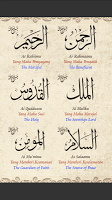 الرحمن
Ar Rahmaan
Yang Maha Pemurah
The Beneficent
الرحيم
Ar Rahiim
Yang Maha Penyayang
The Merciful
الملك
Al Maliku
Yang Maha Suci
The Sovereign Lord
القدوس
Al Quddusu
The Holy
السلام
As Salamu
Yang Memberi Kesejahteraan
The Source of Peace
المؤمن
Al Mu'minu
Yang Memberi Keamanan
The Guardian of Faith